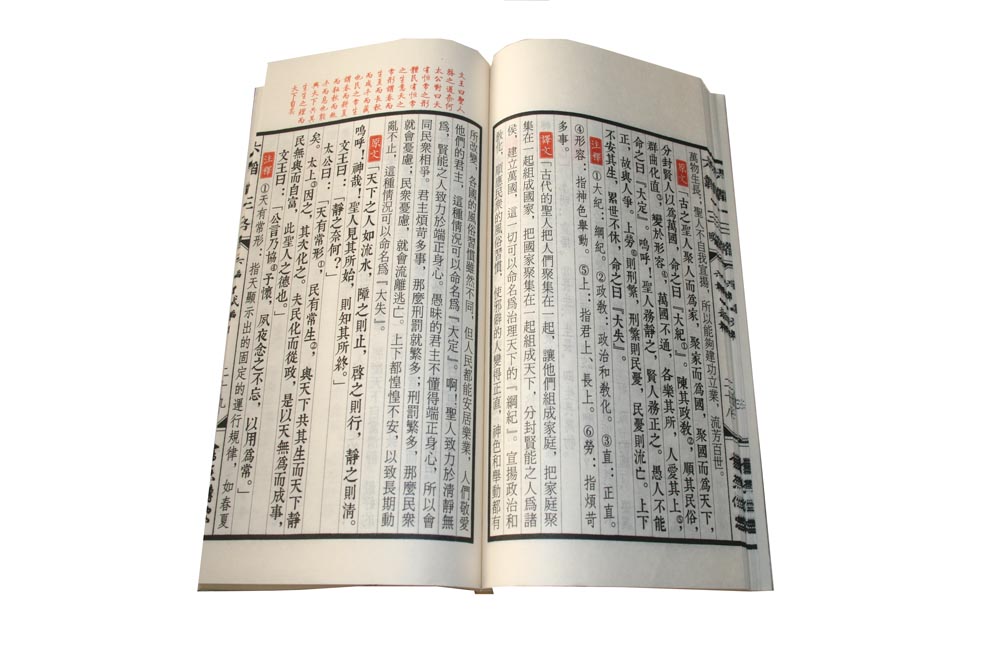 萬物生長，聖人不自我宣揚，所以能夠建功立業，流芳百世。
原文 古之聖人聚人而爲家，聚家而爲國，聚國而爲天下，
分封賢人以爲萬國，命之曰『大紀』。陳其政教②，順其民俗，
群曲化直③，變於形容④，萬國不通，各樂其所，人愛其上⑤，
命之曰『大定』。嗚呼！聖人務靜之，賢人務正之。愚人不能
正，故與人爭。上勞⑥則刑繁，刑繁則民憂，民憂則流亡。上下
不安其生，累世不休，命之曰『大失』。
注釋 ①大紀：綱紀。②政教：政治和教化。③直：正直。
④形容：指神色舉動。⑤上：指君上、長上。⑥勞：指煩苛
多事。
译文 『古代的聖人把人們聚集在一起，讓他們組成家庭，把家庭聚
集在一起組成國家，把國家聚集在一起組成天下，分封賢能之人爲諸
侯，建立萬國，這一切可以命名爲治理天下的『綱紀』。宣揚政治和
教化，順應民衆的風俗習慣，使邪僻的人變得正直，神色和舉動都有
所改變。各國的風俗習慣雖然不同，但人民都能安居樂業，人們敬愛
他們的君主，這種情況可以命名爲『大定』。啊！聖人致力於清靜無
爲，賢能之人致力於端正身心。愚昧的君主不懂得端正身心，所以會
同民衆相爭。君主煩苛多事，那麼刑罰就繁多；刑罰繁多，那麼民衆
就會憂慮；民衆憂慮，就會流離逃亡。上下都惶惶不安，以致長期動
亂不止，這種情況可以命名爲『大失』。
原文 『天下之人如流水，障之則止，啓之則行，靜之則清。
嗚呼！神哉，聖人見其所始，則知其所終。』
文王曰：『靜之奈何？』
太公曰：『天有常形①，民有常生②，與天下共其生而天下靜
矣。太上③因之，其次化之。夫民化而從政，是以天無爲而成事，
民無與而自富，此聖人之德也。』
文王曰：『公言乃協④予懷，夙夜念之不忘，以用爲常。』
注釋 ①天有常形：指天顯示出的固定的運行規律，如春夏
六韜 三略
二十九
文王曰聖人
務之道奈何
太公對曰天
有恒常之形
體民有恒常
之生意天之
常形謂春而
生夏而長秋
而成冬而藏
也民之常生
謂春而耕夏
與天下共其
生生之理而
天下自靜